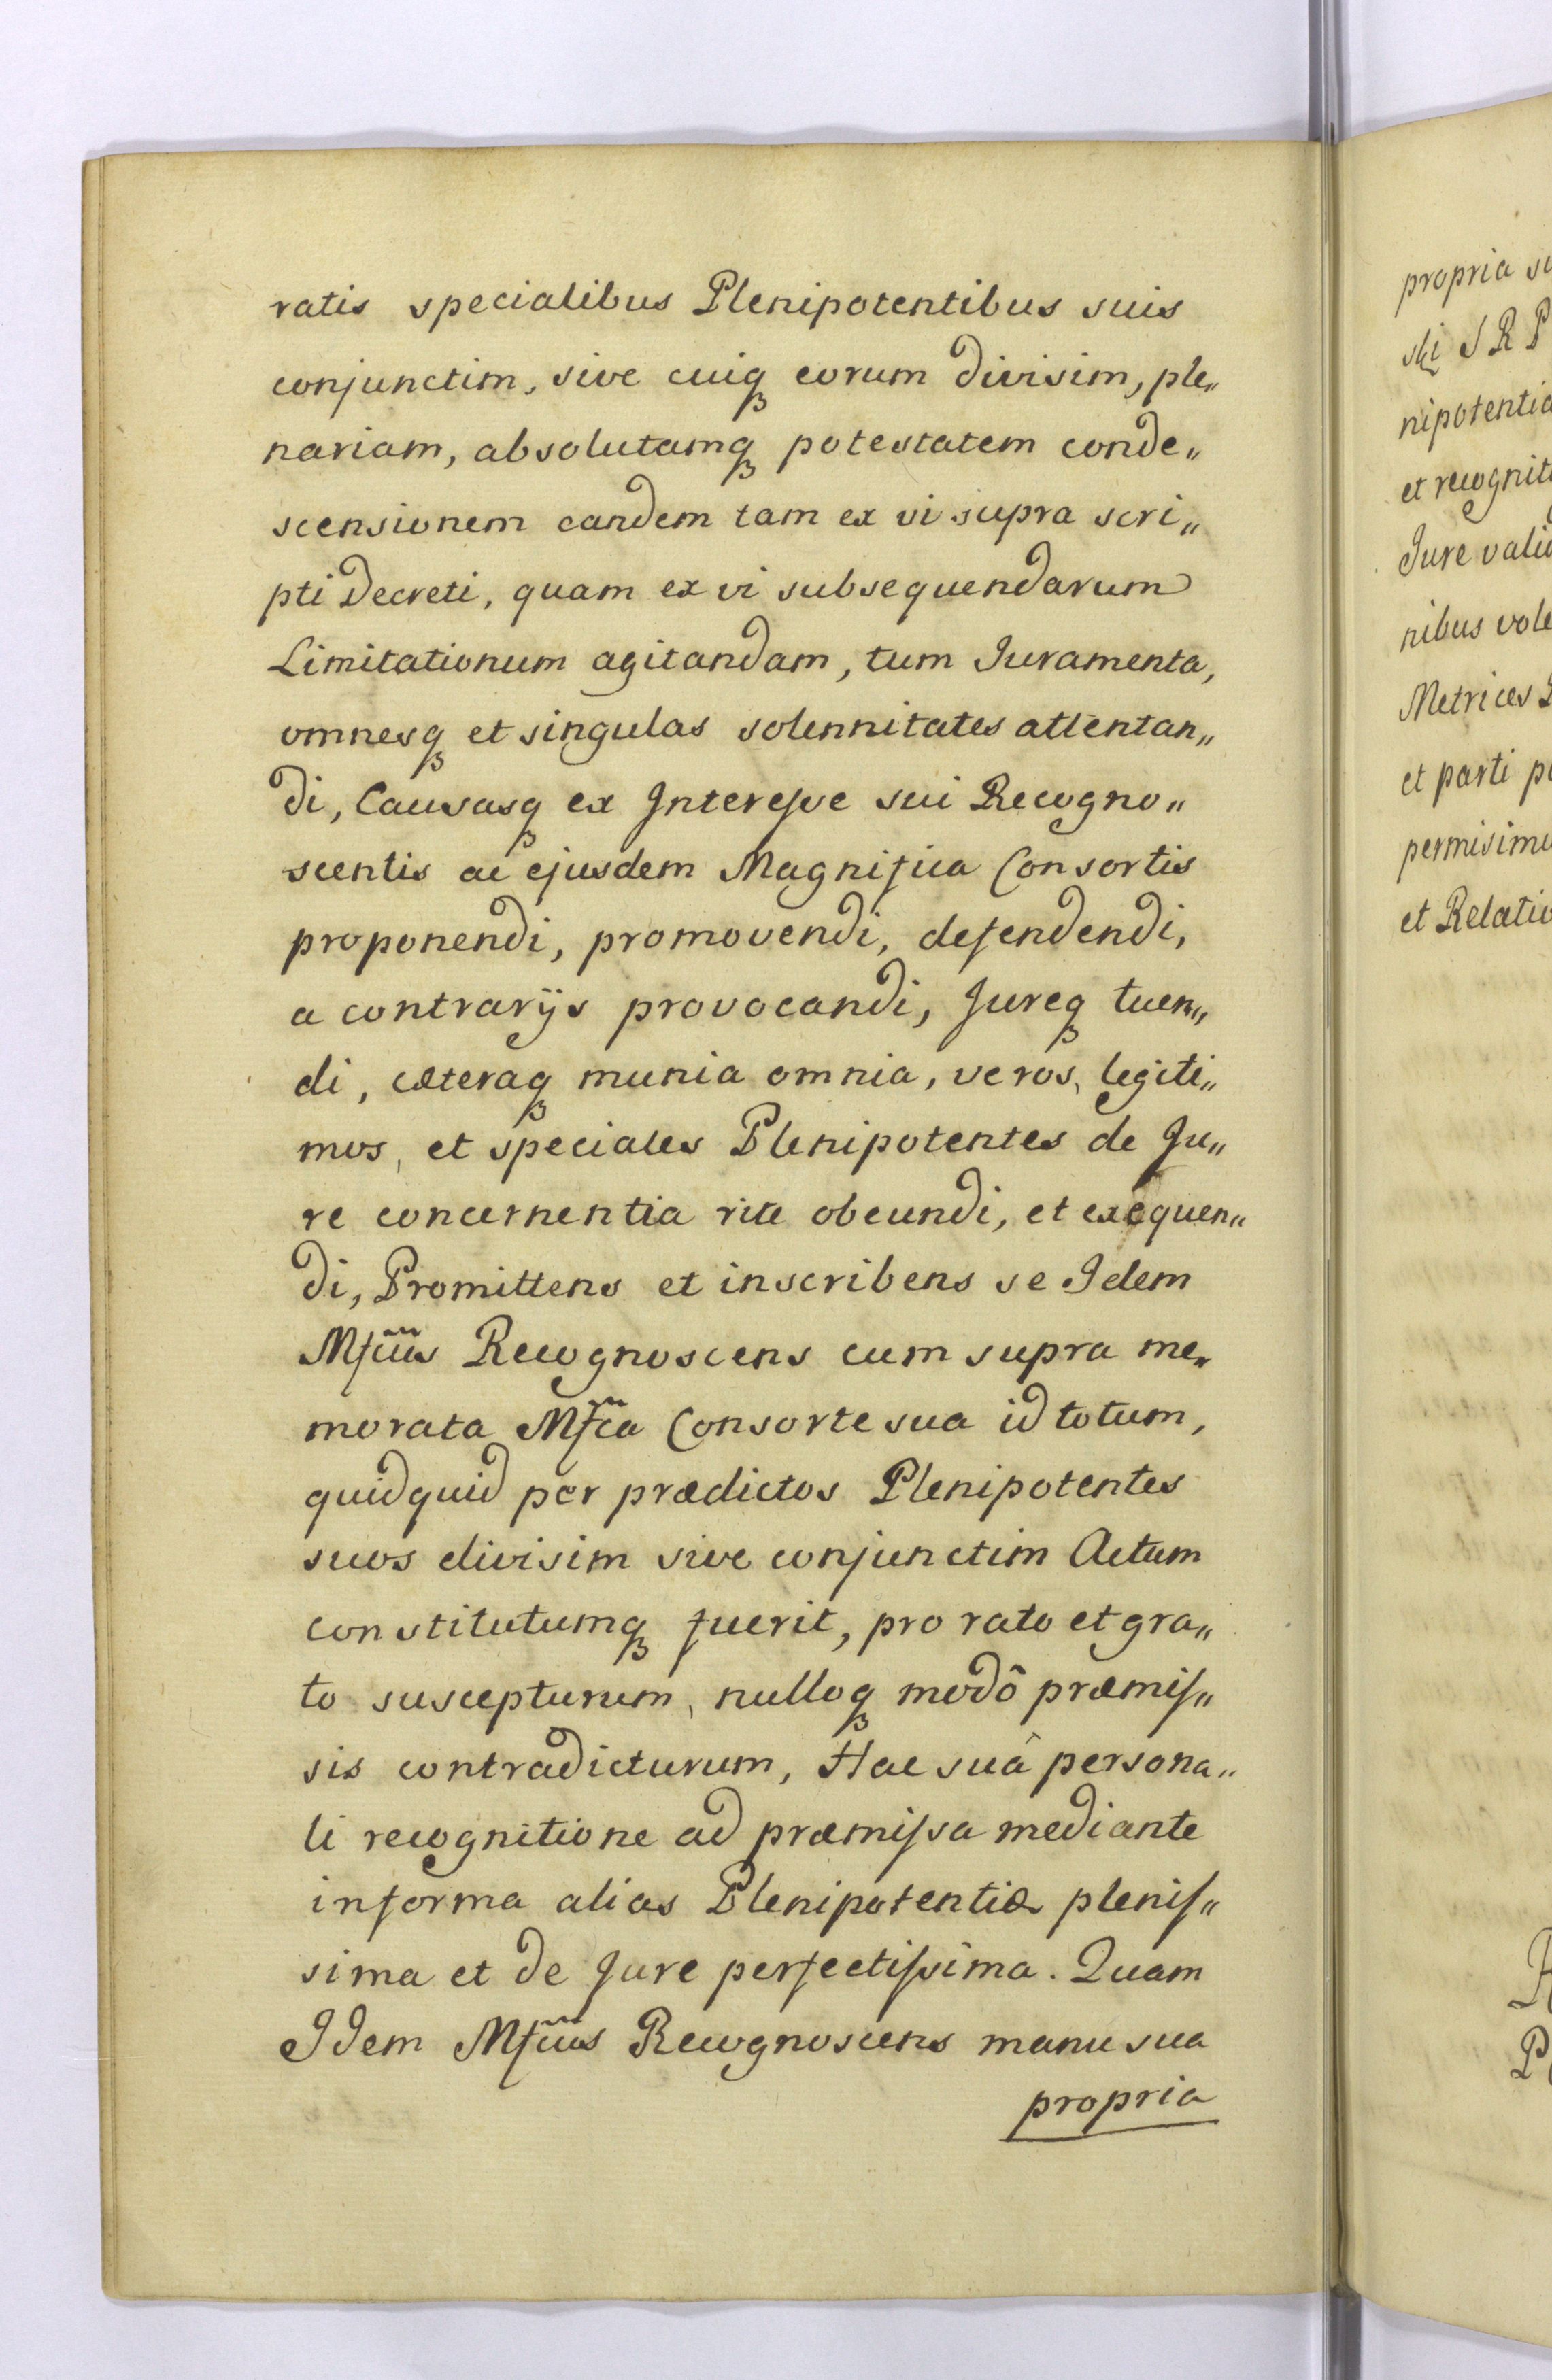 ratis specialibus Plenipotentibus suis
conjunctim, sive cuiqꝫ eorum divisim, ple„
nariam, absolutamqꝫ potestatem conde„
scensionem eandem tam ex vi supra scri„
pti Decreti, quam ex vi subsequendarum
Limitationum agitandam, tum Iuramenta,
omnesqꝫ et singulas solennitates attentan„
di, Causasqꝫ ex Interesse sui Recogno„
scentis ac ejusdem Magnifica Consortis
proponendi, promovendi, defendendi,
a contrarijs provocandi, Jureqꝫ tuen„
di, cæteraqꝫ munia omnia, veros, legiti„
mos, et speciales Plenipotentes de Ju„
re concernentia rite obeundi, et exequen„
di, Promittens et inscribens se Idem
Mfc̃us Recognoscens cum supra me„
morata Mfc̃a Consorte sua id totum,
quidquid per prædictos Plenipotentes
suos divisim sive conjunctim Actum
constitutumqꝫ fuerit, pro rato et gra„
to suscepturum, nulloqꝫ modô præmis„
sis contradicturum, Hac suâ persona„
li recognitione ad præmissa mediante
in forma alias Plenipotentiæ plenis„
sima et de Jure perfectissima. Quam
Idem Mfc̃us Recognoscens manu sua
propria
propria su
ski S R P
nipotentia
et recognit
Jure valid
nibus vole
Metrices
et parti p
permisimu
et Relatio
P